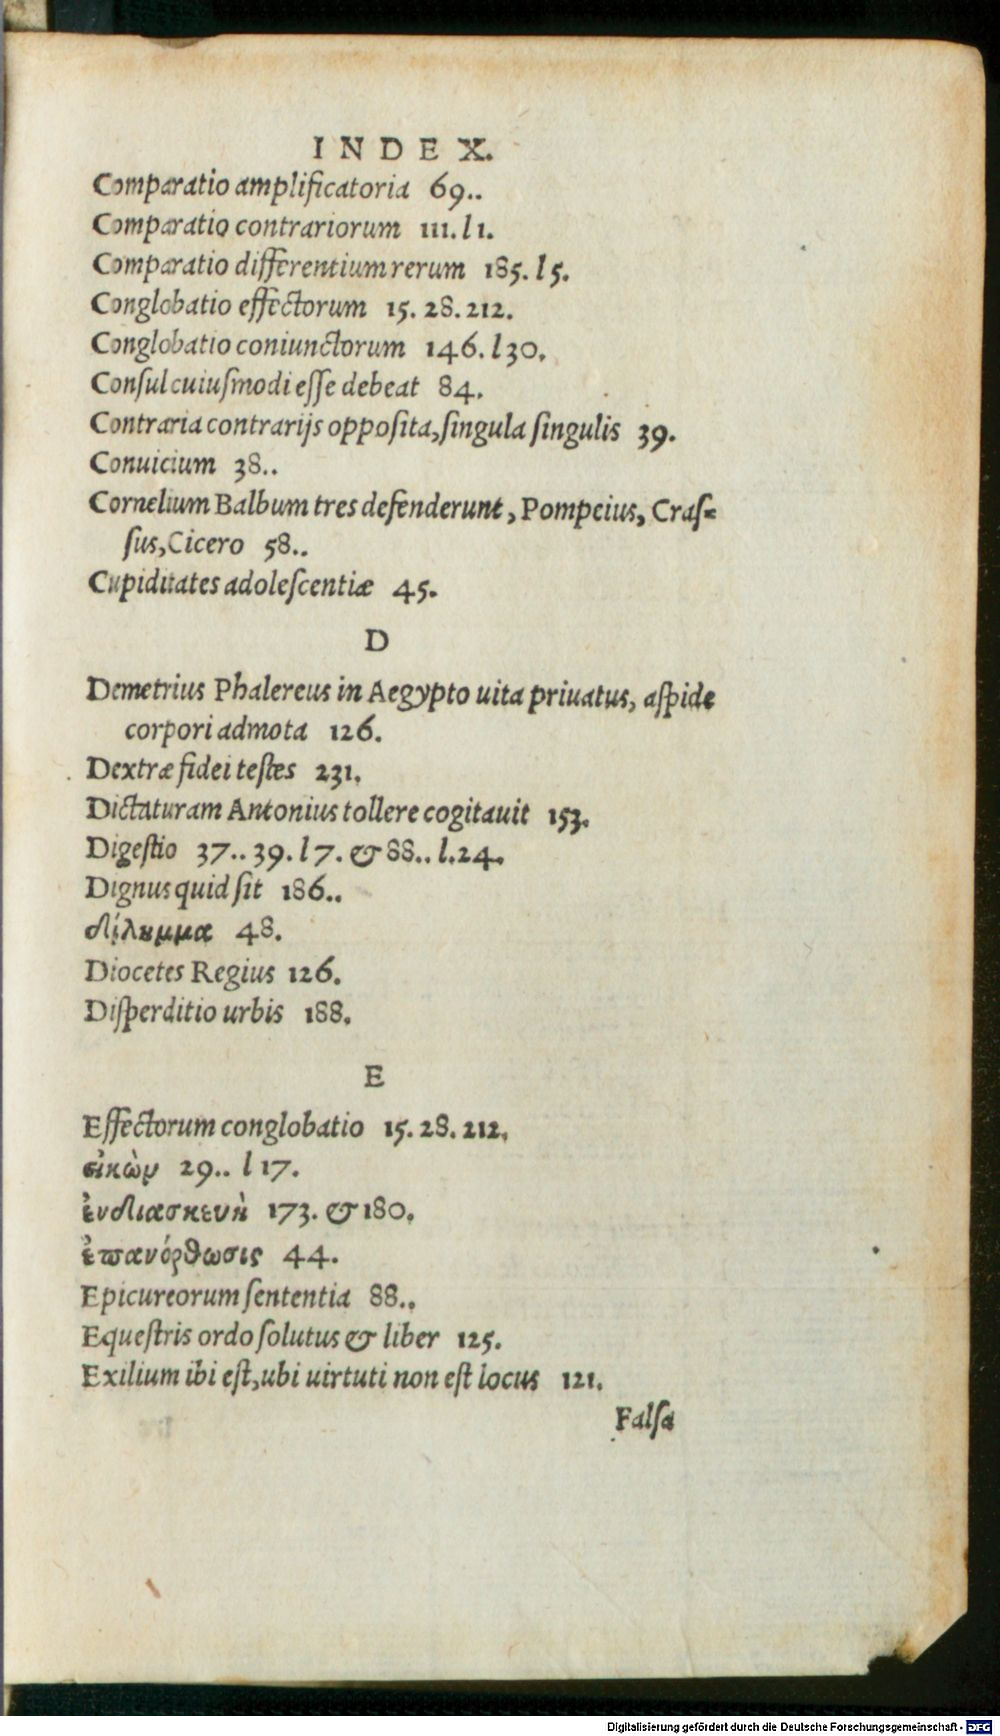 INDEX.
Comparatio amplificatoria 69..
Comparatio contrariorum 111. l 1.
Comparatio differentium rerum 185. l 5.
Conglobatio effectorum 15. 28. 212.
Conglobatio coniunctorum 146. l 30.
Consul cuiusmodi esse debeat 84.
Contraria contrarijs opposita, singula singulis 39.
Conuicium 38..
Cornelium Balbum tres defenderunt, Pompeius, Cras=
sus, Cicero 58..
Cupiditates adolescentiæ 45.
D
Demetrius Phalereus in Aegypto uita priuatus, aspide
corpori admota 126.
Dextræ fidei testes 231.
Dictaturam Antonius tollere cogitauit 153.
Digestio 37.. 39. l 7. & 88.. l. 24.
Dignus quid sit 186..
δίλημμα 48.
Diocetes Regius 126.
Disperditio urbis 188.
E
Effectorum conglobatio 15. 28. 212.
εἰκὼν 29.. l 17.
ἐνδιασκευὴ 173. & 180.
ἐπανόρθωσις 44.
Epicureorum sententia 88..
Equestris ordo solutus & liber 125.
Exilium ibi est, ubi uirtuti non est locus 121.
Falsa
Digitalisierung gefördert durch die Deutsche Forschungsgemeinschaft - DFG